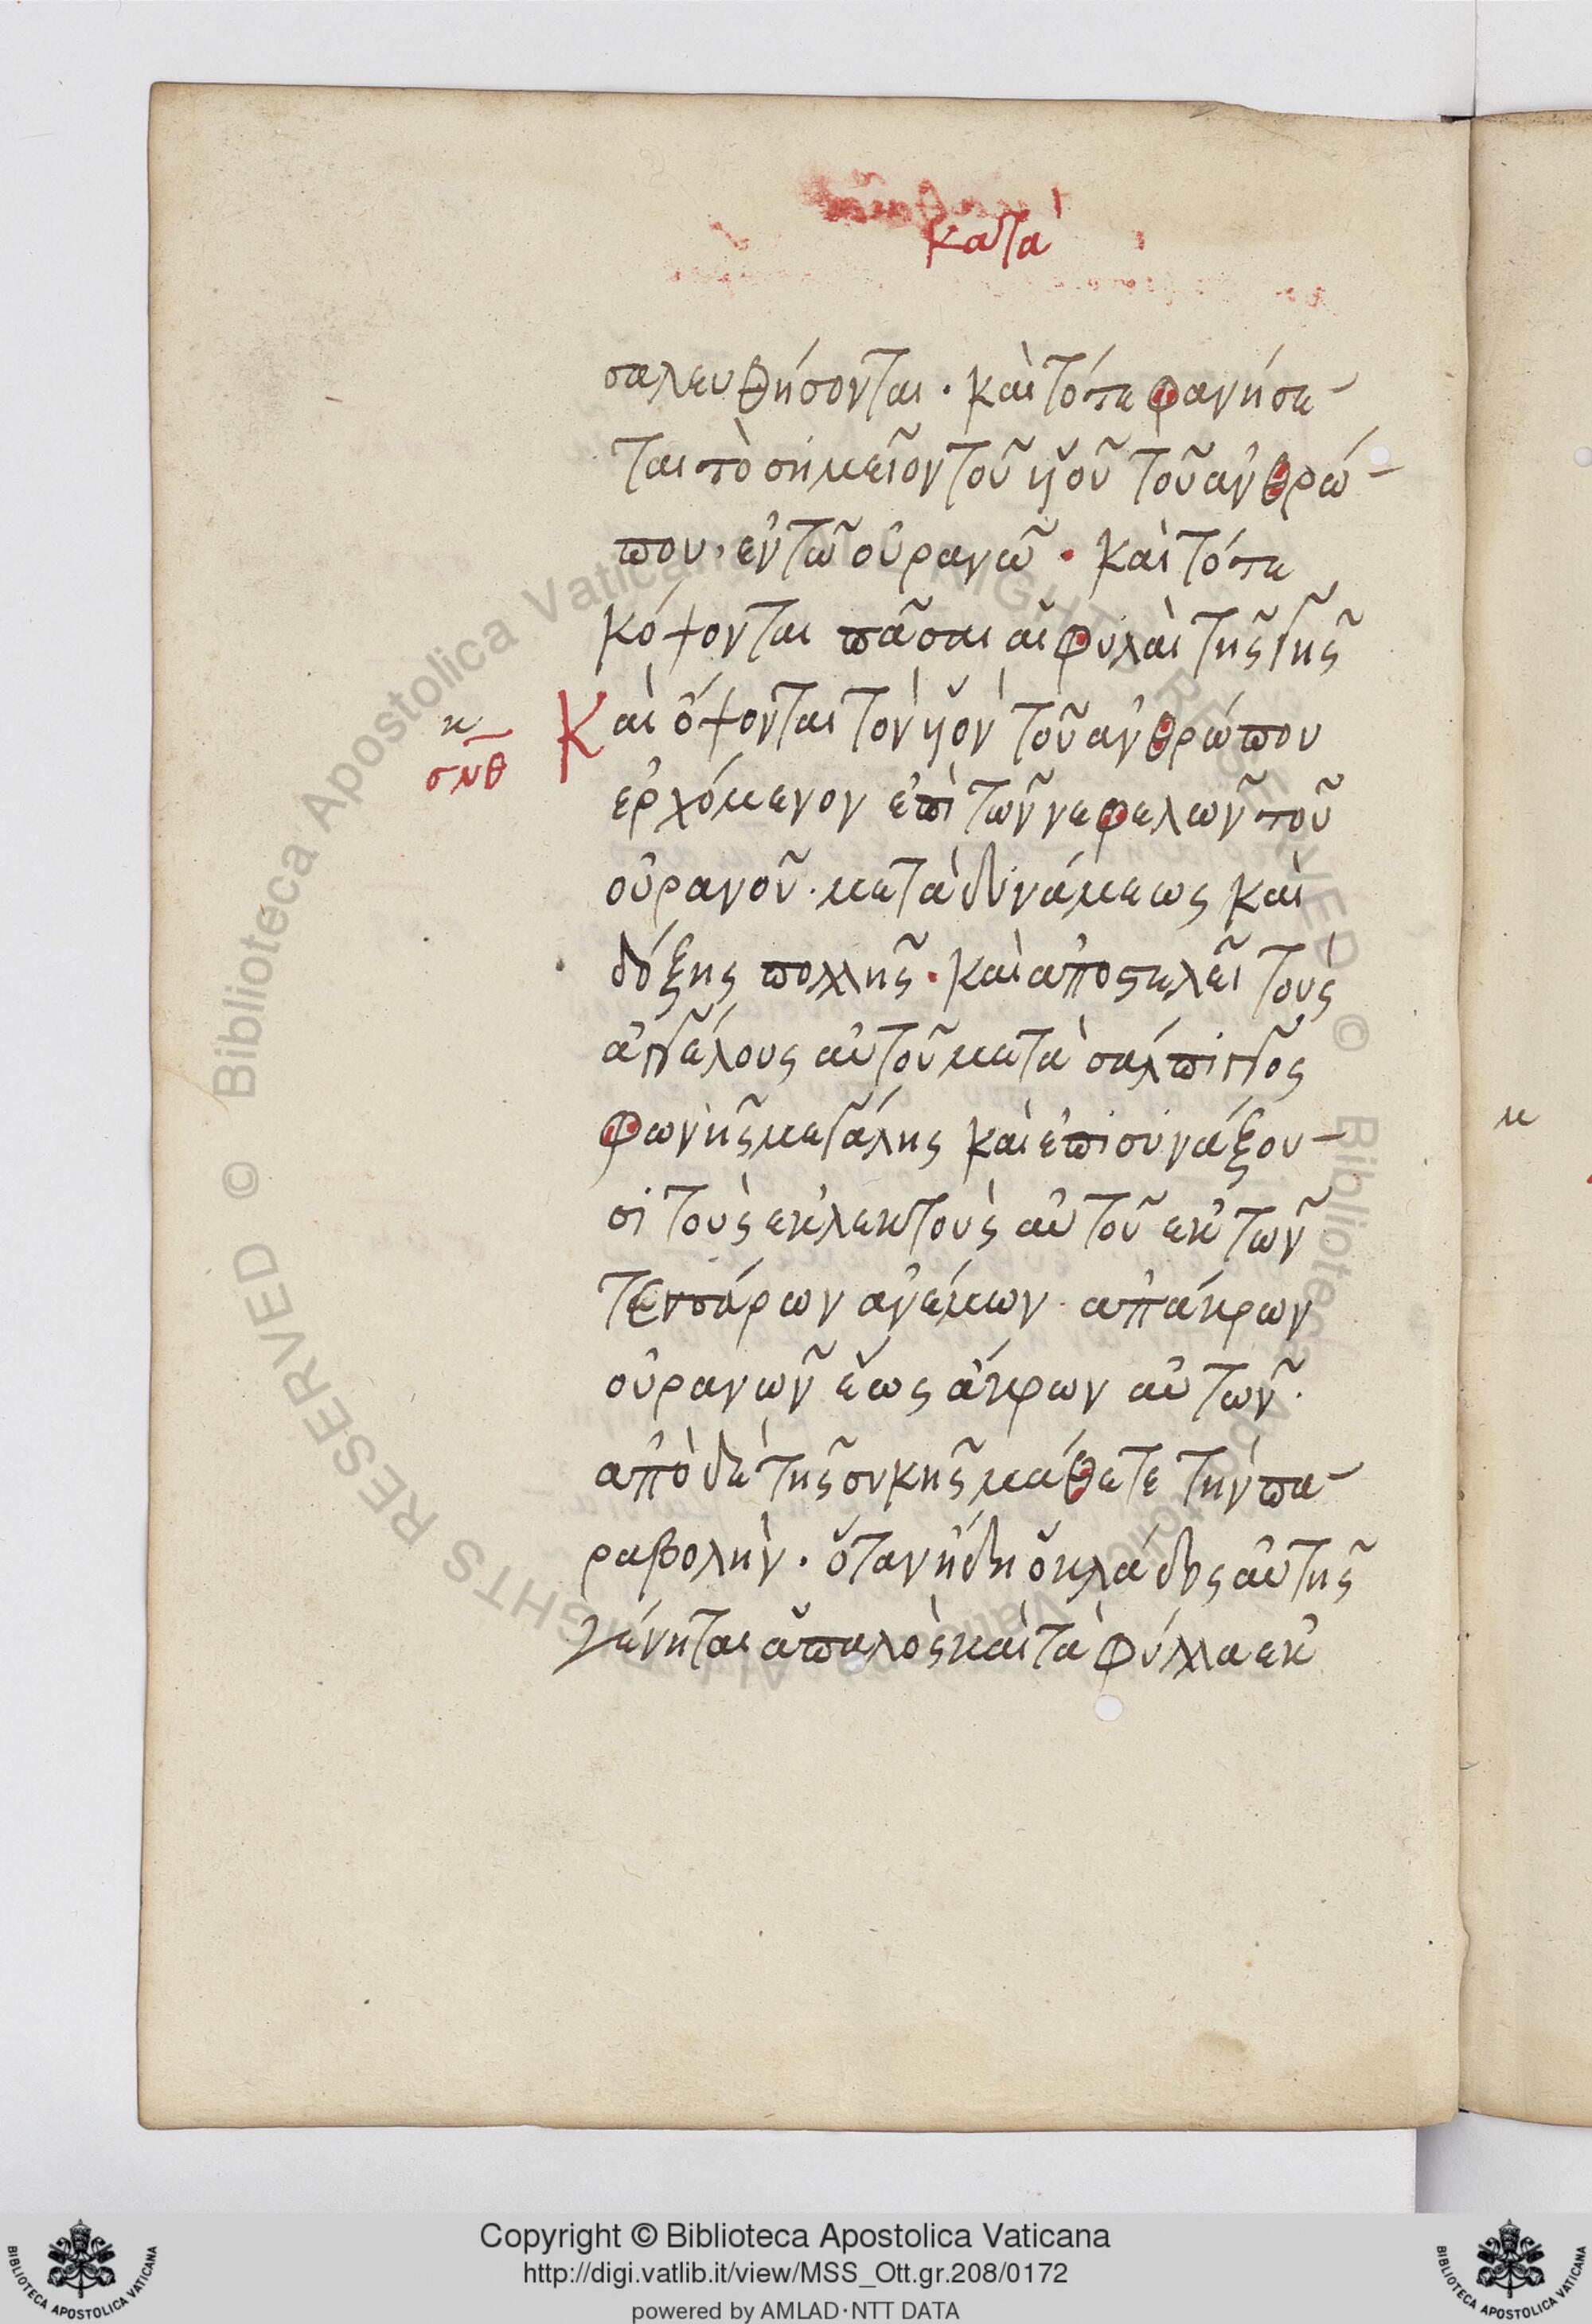 κατὰ
σαλευθήσονται · καὶ τότε φανήσε-
ται τὸ σημεῖον τοῦ ὑιοῦ τοῦ ἀνθρώ-
που · ἐν τῶ οὐρανῶ · καὶ τότε
κόψονται πᾶσαι αἱ φυλαὶ τῆς γῆς
Καὶ ὄψονται τὸν ὑιὸν τοῦ ἀνθρώπου
σνθ
ἐρχόμενον ἐπὶ τῶν νεφελῶν τοῦ
οὐρανοῦ · μετὰ δυνάμεως καὶ
δόξης πολλῆς · καὶ ἀποστελεῖ τοὺς
ἀγγέλους αὐτοῦ μετὰ σάλπιγγος
φωνῆς μεγάλης καὶ ἐπισυνάξου-
σι τοὺς ἐκλεκτοὺς αὐτοῦ ἐκ τῶν
τεσσάρων ἀνέμων · ἀπάκρων
οὐρανῶν ἕως ἄκρων αὐτῶν ·
ἀπὸ δὲ τῆς συκῆς μάθετε τὴν πα-
ραβολήν · ὅταν ἤδη ὁ κλάδος αὐτῆς
γένηται ἁπαλὸς καὶ τὰ φύλλα ἐκ
© Biblioteca Apostolica Vaticana ALL RIGHTS RESERVED
Copyright © Biblioteca Apostolica Vaticana
http://digi.vatlib.it/view/MSS_Ott.gr.208/0172
powered by AMLAD·NTT DATA
BIBLIOTECA APOSTOLICA VATICANA
BIBLIOTECA APOSTOLICA VATICANA